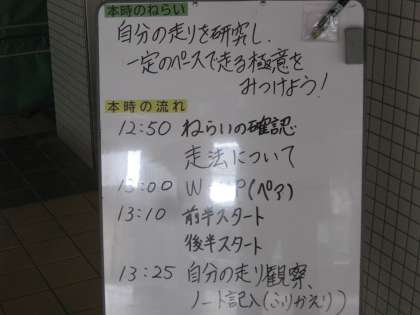 本時のねらい
自分の走りを研究し、
一定のペースで走る極意を
みつけよう!
本時の流れ
12:50 ねらいの確認
走法について
13:00 W-UP(ペア)
13:10 前半スタート
後半スタート
13:25 自分の走り観察、
ノート記入(ふりかえり)